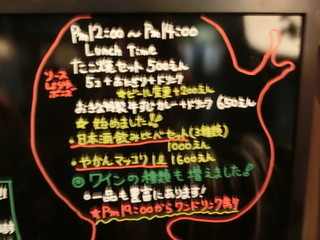 Pm12:00〜Pm14:00
Lunch Time
たこ焼セット 500えん
ソース
しょうゆ
ポンズ
5コ+おにぎり+ドリンク
★ビール変更+200えん
特製牛すじカレー+ドリンク 650えん
★始めました!!
・日本酒飲み比べセット(3種類)
1000えん
・やかんマッコリ 1ℓ 1600えん
◎ワインの種類も増えました!!
◎一品も豊富にあります!
★Pm19:00からワンドリンク制り